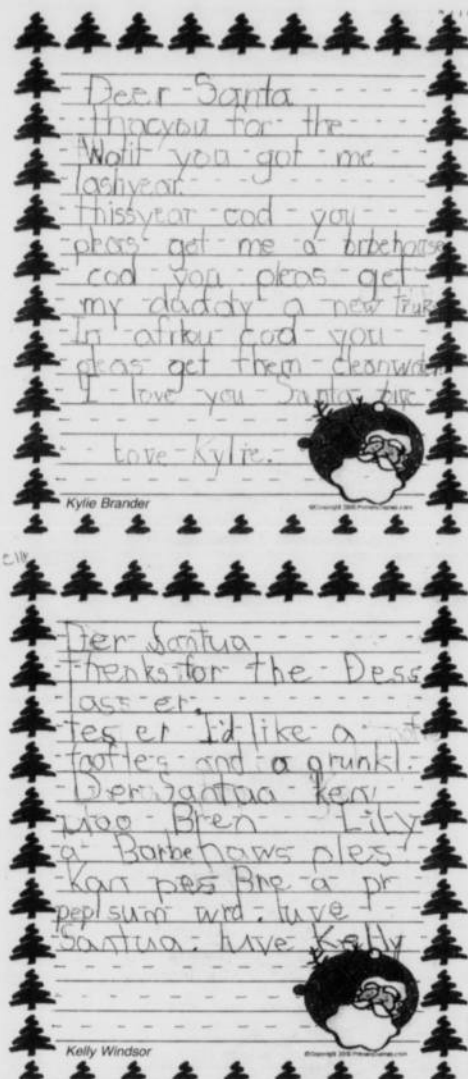 Deer Santa
thacyou for the
Watit you got me
lashyear.
thissyear cod you
pleas get me a brbehouse
cod you pleas get
my daddy a new truk
In afrku cod you
pleas get them cleanwater
I love you Santa
Love Kylie.
Kylie Brander
Der Santua
thenks for the Dess
lass er.
tes er I'd like a
tootles and a grunkl.
Der Santua ken
Bren Lily
a Barbe haws ples
Kan Bre a pr
pepl sum wrd. luve
Santua. luve Kelly
Kelly Windsor